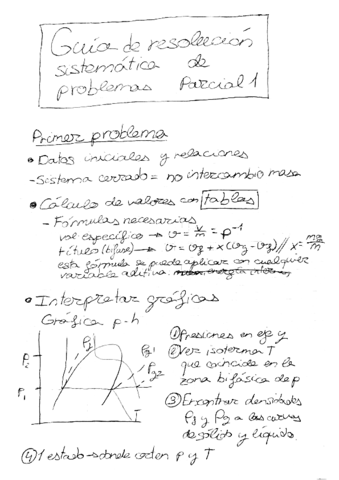 Guía de resolución
sistemática de
problemas Parcial 1
Primer problema
• Datos iniciales y relaciones
- Sistema cerrado = no intercambio masa
• Cálculo de valores con tablas
- Fórmulas necesarias
vol específico → v = V/m = ρ⁻¹
título (bifase) → v = vf + x(vg - vf) // x =
esta fórmula se puede aplicar con cualquier
variable aditiva.
• Interpretar gráficas
Gráfica p-h
① Presiones en eje y
② Ver isoterma T
que coincide en la
zona bifásica de p
③ Encontrar densidades
ρf y ρg a las curvas
de sólido y líquido.
④ 1 estado → donde corten p y T
P₂
P₁
ρf
T